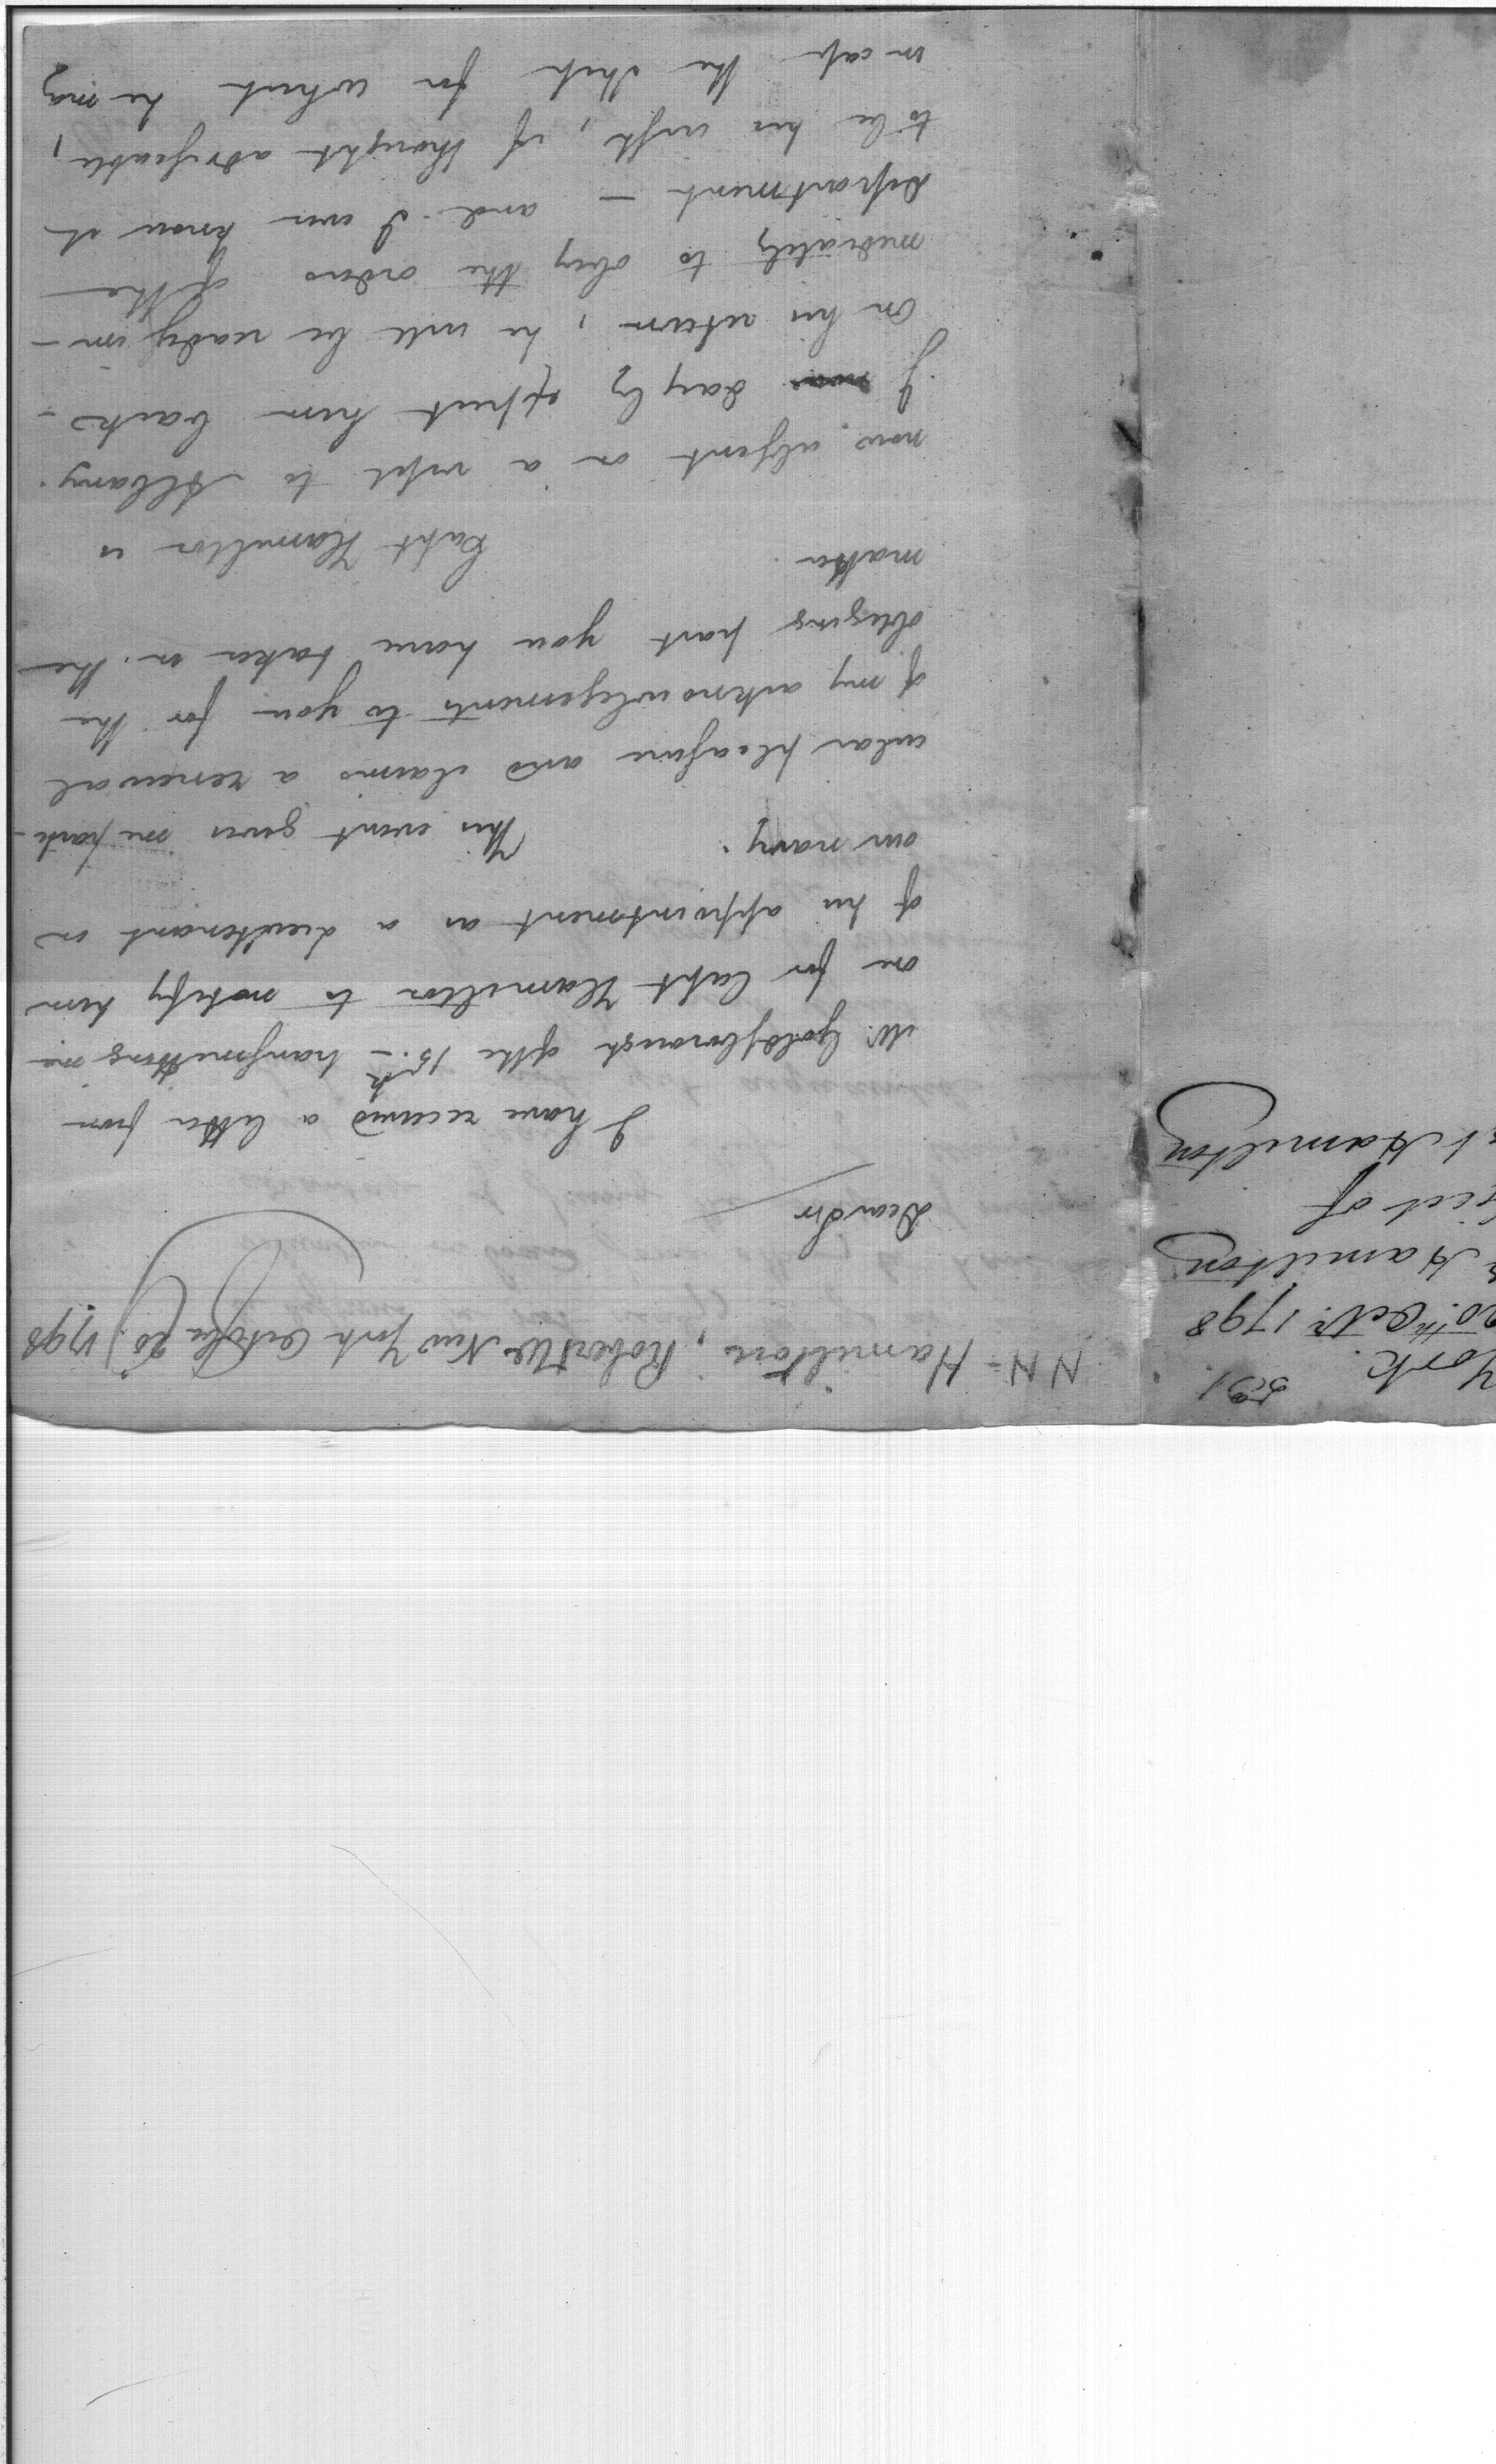 NN = Hamilton, Robert W. New York October 20. 1798
Dear Sir
I have received a letter from
Mr. Goldsborough of the 15th - transmitting me
one for Capt Hamilton to notify him
of his appointment as a Lieutenant in
our navy. This event gives me parti-
cular pleasure and claims a renewal
of my acknowlegements to you for the
obliging part you have taken in the
matter.
Capt Hamilton is
now absent on a visit to Albany.
I dayly expect him back -
On his return, he will be ready im-
mediately to obey the orders of the
Department - and I even know it
to be his wish, if thought adviseable,
in case the ship for which he may
York.
531
20th Octr. 1798
Hamilton
of
Hamilton